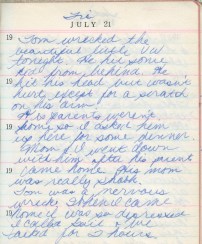 Fri
JULY 21
19 Tom wrecked the
beautiful little VW
tonight. He hit some
car from behind. He
hit his head but wasn't
hurt except for a scratch
on his arm!
19 His parents weren't
home so I asked him
is here for some dinner
Mom & I went down
with him after his parents
came home. His mom
was really shook.
Tom was a nervous
wreck. When I came
19 home I was so depressed
I called & we
talked for 2 hours.